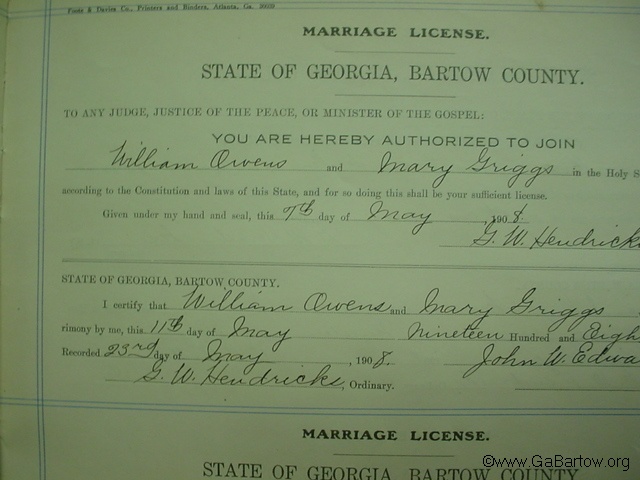 Foote & Davies Co., Printers and Binders, Atlanta, Ga.
MARRIAGE LICENSE.
STATE OF GEORGIA, BARTOW COUNTY.
TO ANY JUDGE, JUSTICE OF THE PEACE, OR MINISTER OF THE GOSPEL:
YOU ARE HEREBY AUTHORIZED TO JOIN
William Owens and Mary Griggs in the Holy S
according to the Constitution and laws of this State, and for so doing this shall be your sufficient license.
Given under my hand and seal, this 7th day of May, 1908.
G. W. Hendricks
STATE OF GEORGIA, BARTOW COUNTY.
I certify that William Owens and Mary Griggs
rimony by me, this 11th day of May nineteen Hundred and Eigh
Recorded 23rd day of May, 1908. John W. Edwa
G. W. Hendricks, Ordinary.
MARRIAGE LICENSE.
STATE OF GEORGIA, BARTOW COUNTY.
©www.GaBartow.org